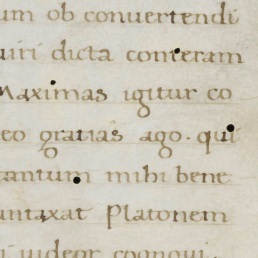 um ob convertendi
uiri dicta conferam
Maximas igitur co
eo gratias ago. qui
tantum mihi bene
untaxat Platonem
i uideor cognoui